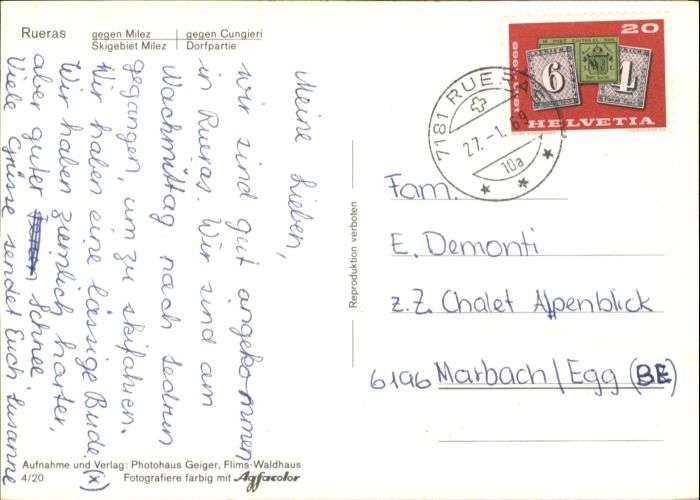 Rueras
gegen Milez
Skigebiet Milez
gegen Cungieri
Dorfpartie
Meine Lieben,
wir sind gut angekommen
in Rueras. Wir sind am
Nachmittag nach Sedrun
gegangen, um zu skifahren.
Wir haben eine lässige Bude. (x)
Wir haben ziemlich harter,
aber guter Schnee.
Viele Grüsse sendet Euch Susanne
Aufnahme und Verlag: Photohaus Geiger, Flims-Waldhaus
4/20
Fotografiere farbig mit Agfacolor
Reproduktion verboten
7181 RUERAS
27.-1.69
10a
20
HELVETIA
6
4
Fam.
E. Demonti
z.Z. Chalet Alpenblick
6196 Marbach/Egg (BE)